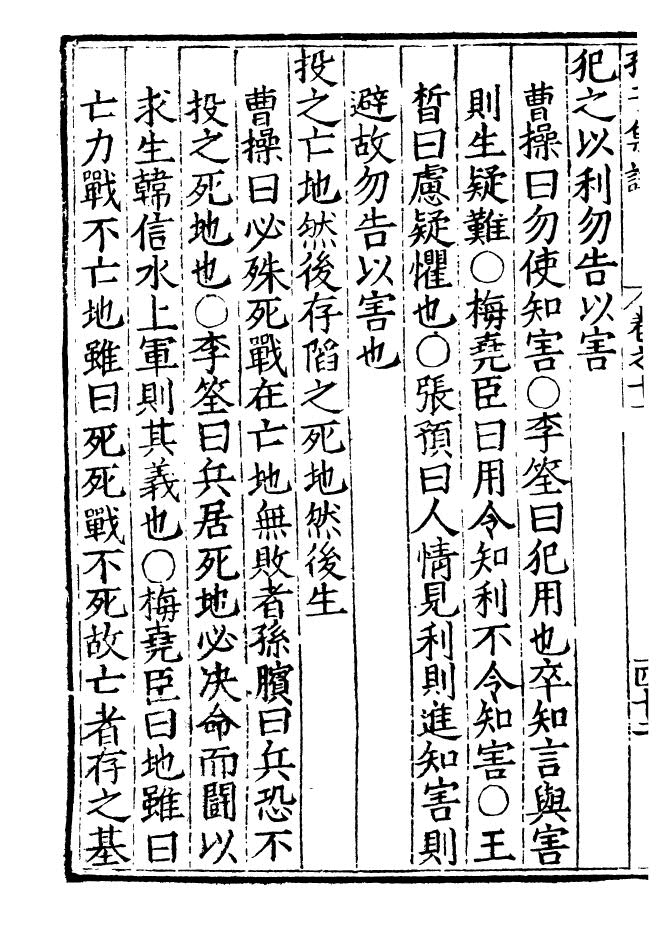 孫子集註 卷之十一 四十二
犯之以利勿告以害
曹操曰勿使知害○李筌曰犯用也卒知言與害
則生疑難○梅堯臣曰用令知利不令知害○王
晳曰慮疑懼也○張預曰人情見利則進知害則
避故勿告以害也
投之亡地然後存陷之死地然後生
曹操曰必殊死戰在亡地無敗者孫臏曰兵恐不
投之死地也○李筌曰兵居死地必决命而鬪以
求生韓信水上軍則其義也○梅堯臣曰地雖曰
亡力戰不亡地雖曰死死戰不死故亡者存之基